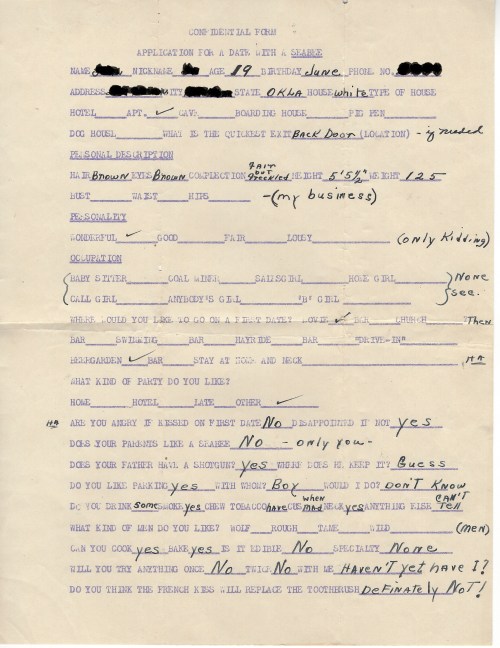 CONFIDENTIAL FORM
APPLICATION FOR A DATE WITH A SEABEE
NAME NICKNAME AGE 19 BIRTHDAY June PHONE NO.
ADDRESS CITY STATE OKLA HOUSE white TYPE OF HOUSE
HOTEL APT. ✓ CAVE BOARDING HOUSE PIG PEN
DOG HOUSE WHAT IS THE QUICKEST EXIT BACK DOOR (LOCATION) - if needed
PERSONAL DESCRIPTION
HAIR Brown EYES Brown COMPLECTION FAIR but freckled HEIGHT 5' 5½" WEIGHT 125
BUST WAIST HIPS -(my business)
PERSONALITY
WONDERFUL ✓ GOOD FAIR LOUSY (only Kidding)
OCCUPATION
BABY SITTER COAL MINER SALESGIRL HOME GIRL None
CALL GIRL ANYBODY'S GIRL 'B' GIRL see.
WHERE WOULD YOU LIKE TO GO ON A FIRST DATE? MOVIE ✓ BAR CHURCH Then
BAR SWIMMING BAR HAYRIDE BAR "DRIVE-IN"
BEERGARDEN ✓ BAR STAY AT HOME AND NECK HA
WHAT KIND OF PARTY DO YOU LIKE?
HOME HOTEL LATE OTHER ✓
HA ARE YOU ANGRY IF KISSED ON FIRST DATE No DISAPPOINTED IF NOT yes
DOES YOUR PARENTS LIKE A SEABEE No - only you -
DOES YOUR FATHER HAVE A SHOTGUN? yes WHERE DOES HE KEEP IT? Guess
DO YOU LIKE PARKING yes WITH WHOM? Boy WOULD I DO? DON'T KNOW
DO YOU DRINK some SMOKE yes CHEW TOBACCO have CUSS when mad NECK yes ANYTHING ELSE CAN'T TELL
WHAT KIND OF MEN DO YOU LIKE? WOLF ROUGH TAME WILD (men)
CAN YOU COOK yes BAKE yes IS IT EDIBLE No SPECIALTY None
WILL YOU TRY ANYTHING ONCE No TWICE No WITH ME HAVEN'T yet have I?
DO YOU THINK THE FRENCH KISS WILL REPLACE THE TOOTHBRUSH DefinateLy NOT!